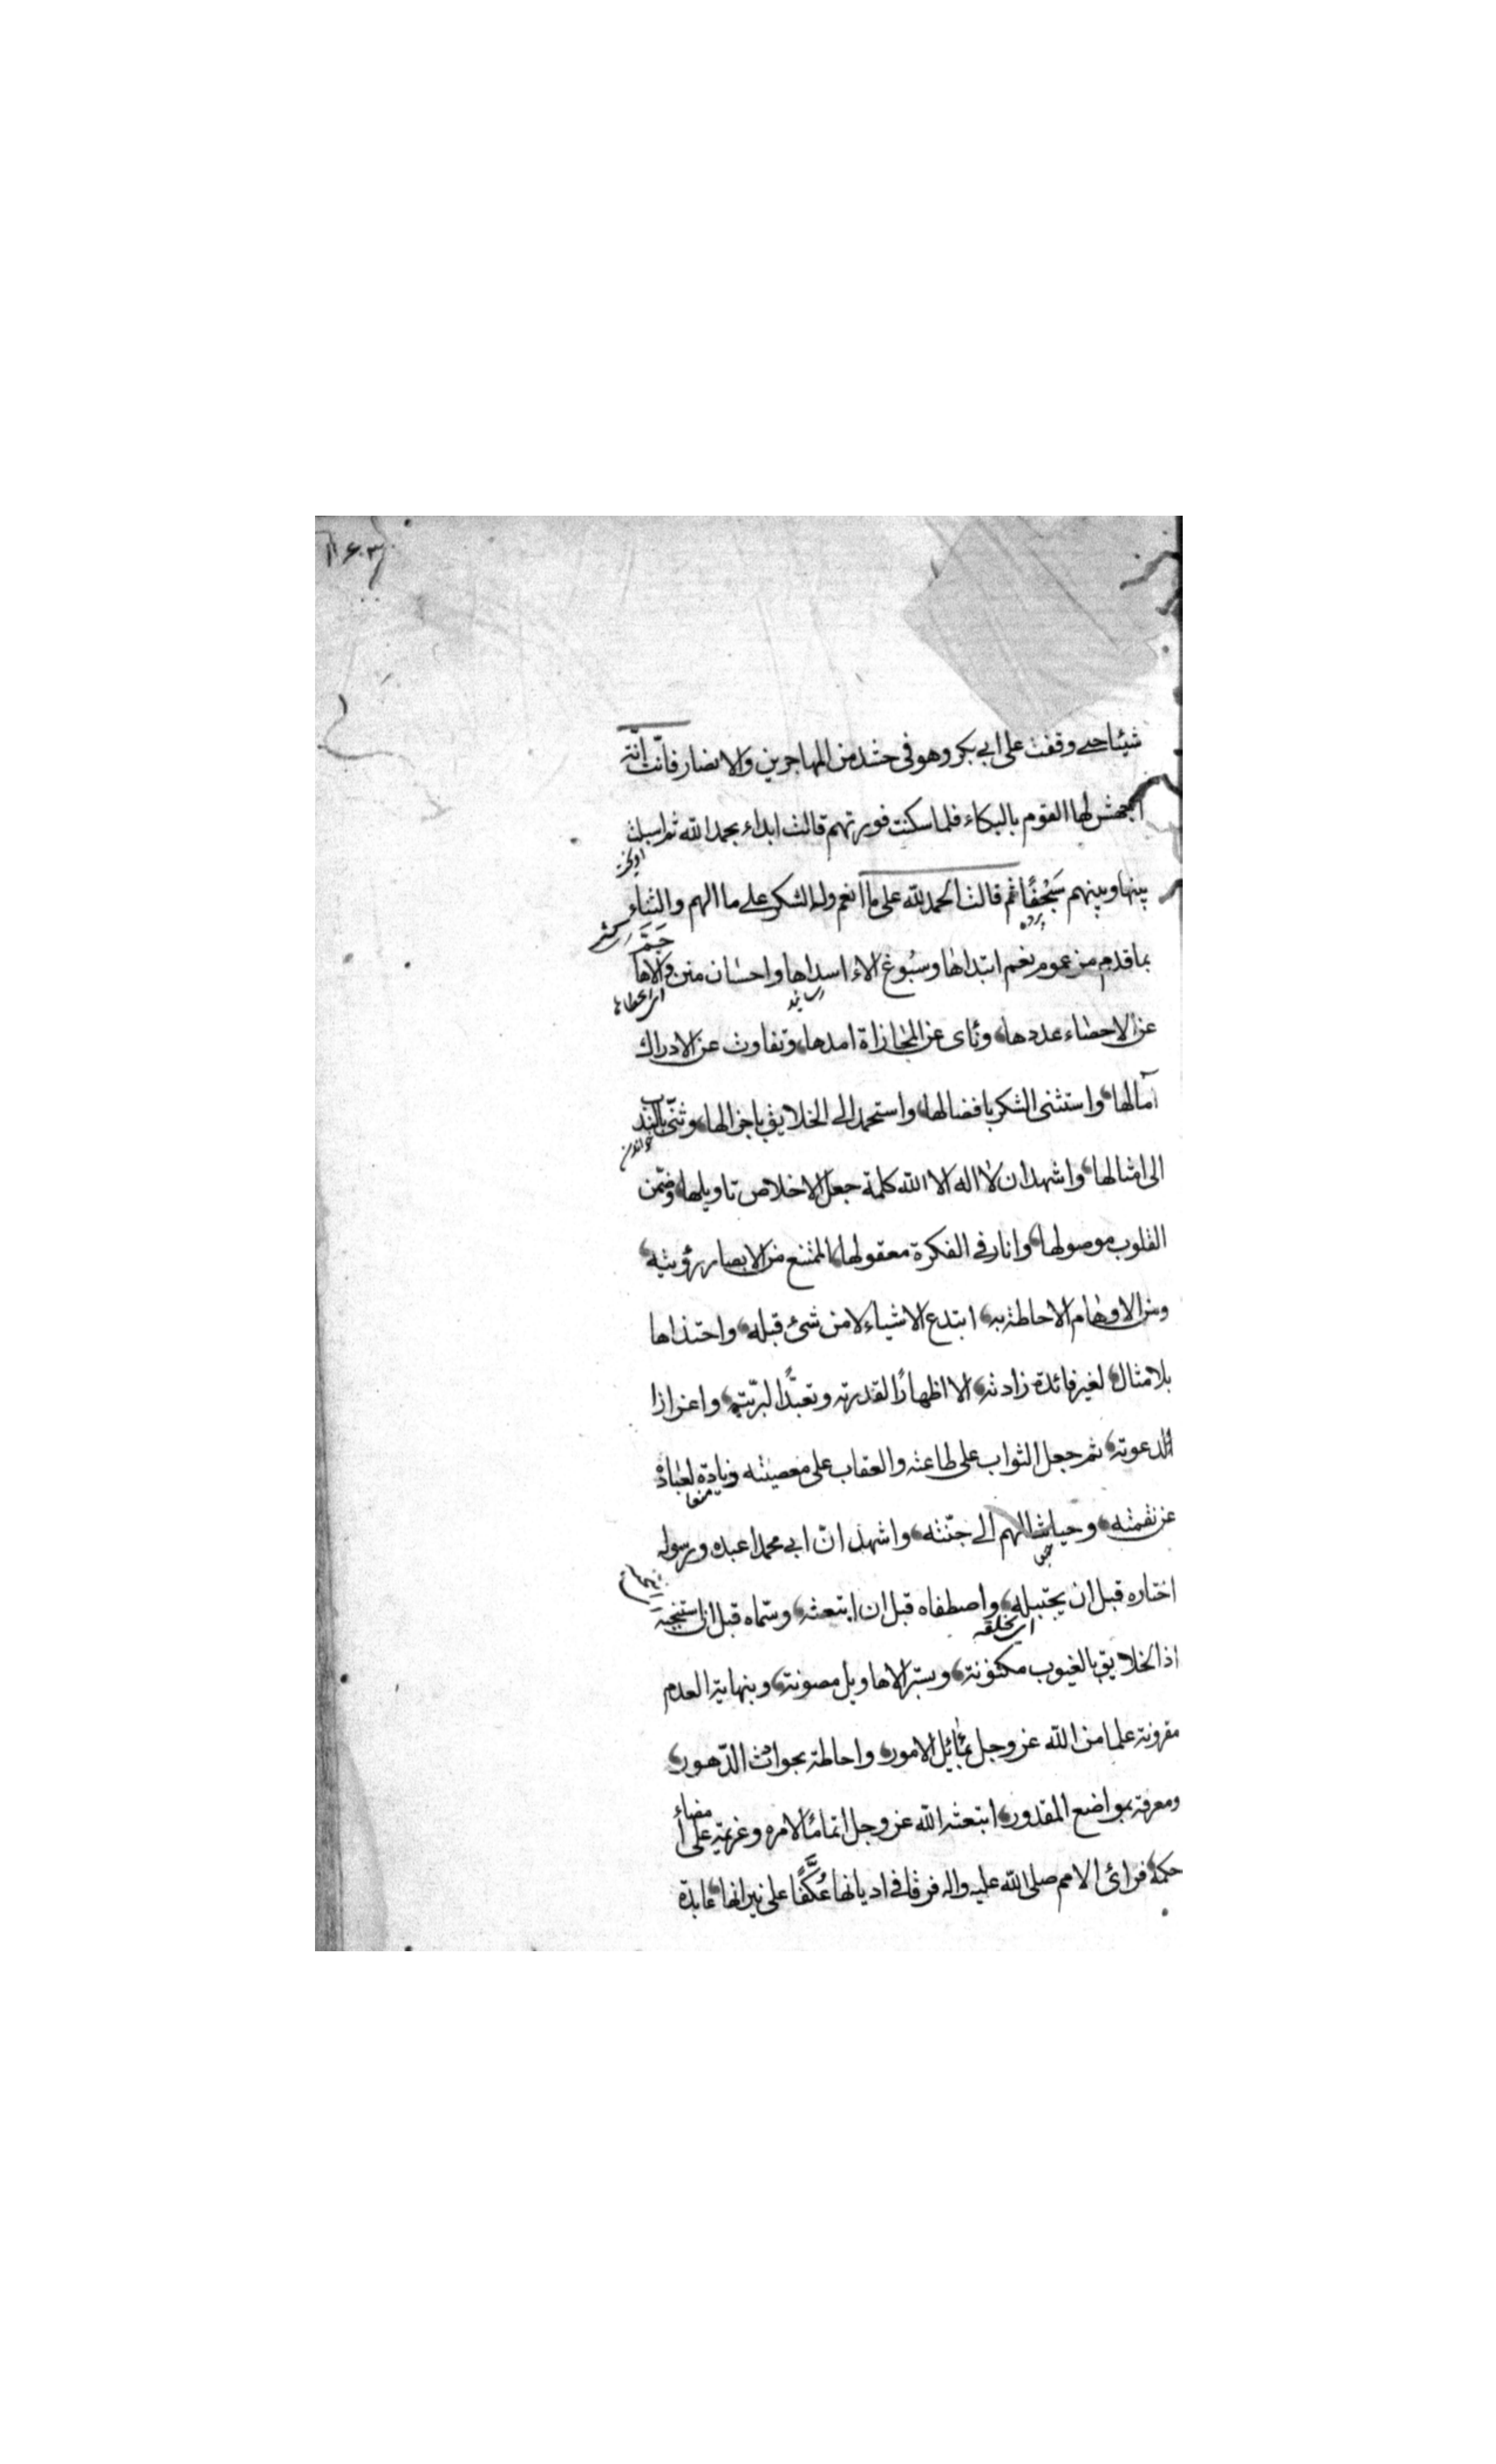 شيئا حتى وقفت على ابى بكر وهو فى حشد من المهاجرين والانصار فانّت انّة
اجهش لها القوم بالبكاء فلما سكنت فورتهم قالت ابداء بحمد الله ثم اسبلت
بينها وبينهم سَجْفًا ثم قالت الحمد لله على ما انعم وله الشكر على ما الهم والثناء
پرده
جَمَّ اى كثر
بما قدم من عموم نعم ابتداها وسُبُوغ الاء اسداها واحسان منن والاها
رسانيد
اى اعطاها
عن الاحصاء عددها وناى عن المجازاة امدها وتفاوت عن الادراك
آمالها واستثنى الشكر بافضالها واستحمد الى الخلايق باجزالها وثنّى بالندب
خواندن
الى امثالها واشهد ان لا اله الا الله كلمة جعل الاخلاص تاويلها وضمّن
القلوب موصولها وانار فى الفكرة معقولها الممتنع من الابصار رؤيته
ومن الاوهام الاحاطة به ابتدع الاشياء لا من شئ قبله واحتذاها
بلا مثال لغير فائدة زادته الا اظهارًا لقدرته وتعبّدًا لبريّته واعزازا
لدعوته ثم جعل الثواب على طاعته والعقاب على معصيته وزيادة لعباده
عن نقمته وحياشا لهم الى جنّته واشهد انّ ابى محمدا عبده ورسوله
اختاره قبل ان يجتبله واصطفاه قبل ان ابتعثه وسمّاه قبل ان استنجبه
اى يخلقه
اذ الخلايق بالغيوب مكنونة وبستر الاهاويل مصونة وبنهاية العدم
مقرونة علما من الله عز وجل بمآئل الامور واحاطة بحوادث الدّهور
ومعرفة بمواضع المقدور ابتعثه الله عز وجل اتمامًا لامره وعزيمة على امضاء
حكمه فراى الامم صلى الله عليه واله فرقا فى اديانها عُكَّفًا على نيرانها عابدة